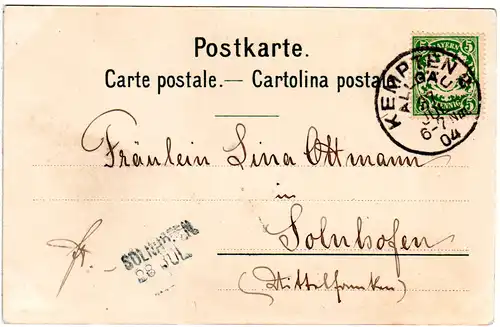 Postkarte.
Carte postale.— Cartolina postale
5 BAYERN 5
5 PFENNIG 5
KEMPTEN 2
ALLGÄU
JUL
6-7 Nm
04
Fräulein Lina Ottmann
in
Solnhofen
(Mittelfranken)
SOLNHOFEN
26 JUL.